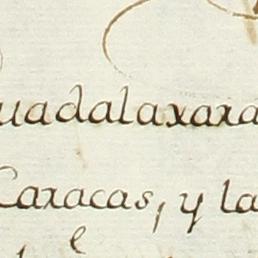 uadalaxara
Caracas, y la